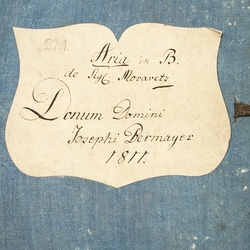 221.
Aria in B.
de Sigl Moravetz
Donum Domini
Josephi Bermayer
1811.